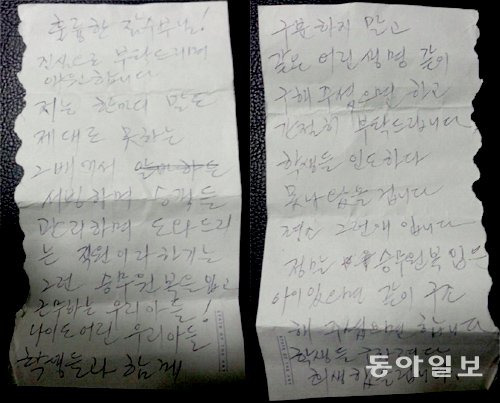 훌륭한 잠수부님!
진심으로 부탁드리며
애원합니다
저는 한마디 말도
제대로 못하는
그배에서 일이하든
서빙하며 승객들
관리하며 도와드리
는 직원이라하기는
그런 승무원복을 입고
근무하는 우리아들!
나이도 어린 우리아들
학생들과 함께
구분하지 말고
같은 어린생명 같이
구해 주셨으면 하고
간절히 부탁드립니다
학생들 인도하다
못나왔을 겁니다
평소 그런애 입니다
정말 승무원복 입은
아이있으면 같이 구조
해 주셨으면 합니다
학생들
희생
동아일보